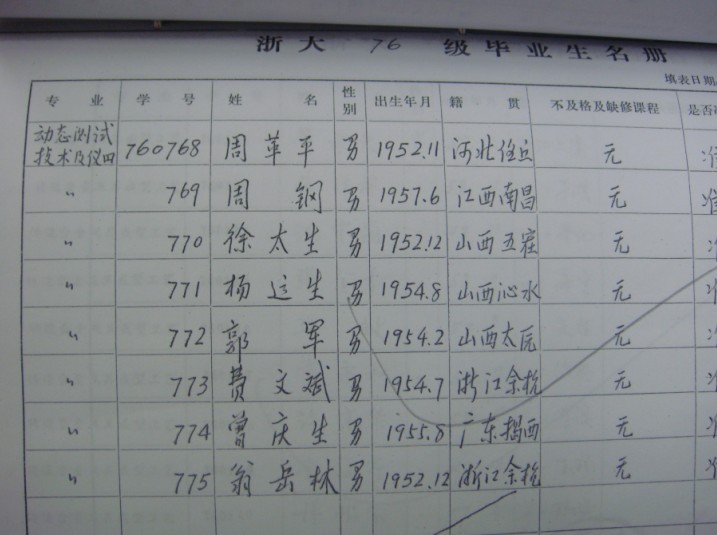 浙大 76 级毕业生名册
填表日期
专业 学号 姓名 性别 出生年月 籍贯 不及格及缺修课程 是否
动态测试技术及仪四 760768 周苹平 男 1952.11 河北任丘 无 准
〃 769 周钢 男 1957.6 江西南昌 无 准
〃 770 徐太生 男 1952.12 山西五寨 无
〃 771 杨运生 男 1954.8 山西沁水 无
〃 772 郭军 男 1954.2 山西太原 无
〃 773 费文斌 男 1954.7 浙江余杭 无
〃 774 曾庆生 男 1955.8 广东揭西 无
〃 775 翁岳林 男 1952.12 浙江余杭 无